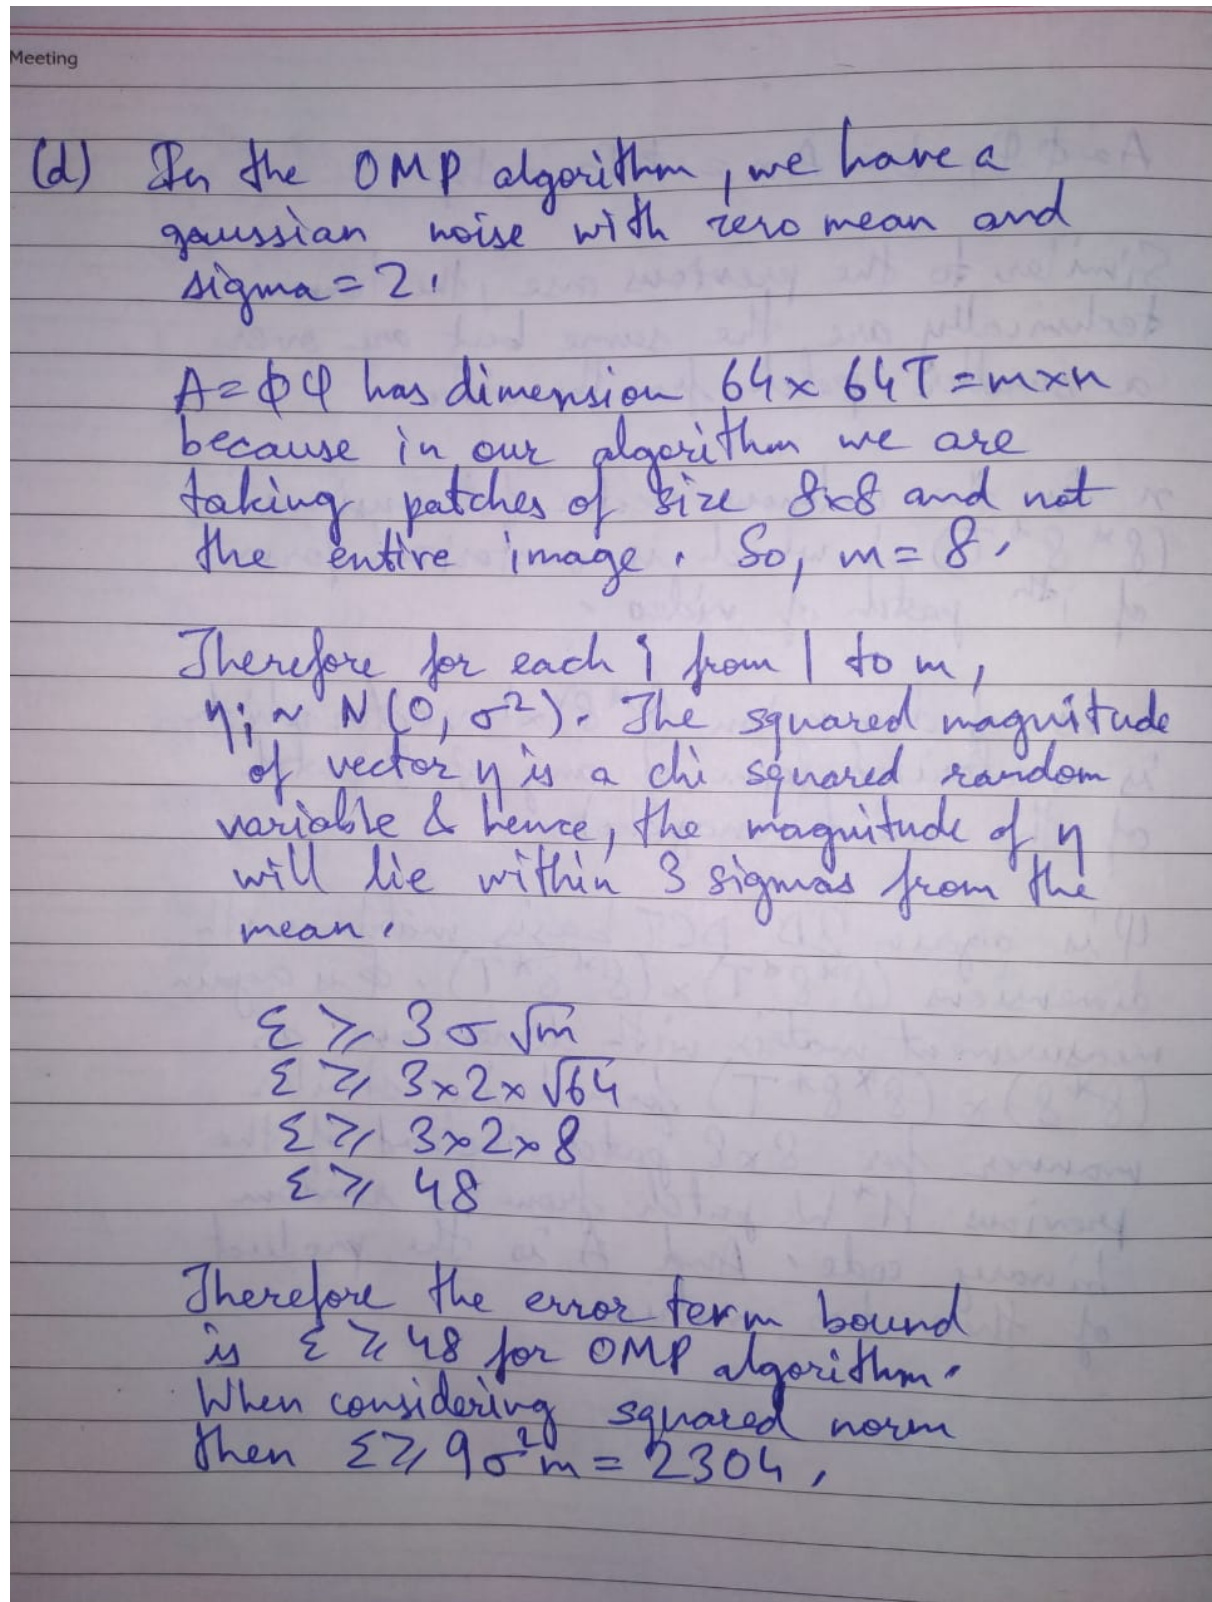 Meeting
(d) In the OMP algorithm, we have a
gaussian noise with zero mean and
sigma = 2.
A = ϕφ has dimension 64 x 64T = m x n
because in our algorithm we are
taking patches of size 8x8 and not
the entire image. So, m = 8.
Therefore for each i from 1 to m,
ηi ~ N(0, σ²). The squared magnitude
of vector η is a chi squared random
variable & hence, the magnitude of η
will lie within 3 sigmas from the
mean.
ε ⩾ 3σ√m
ε ⩾ 3x2x√64
ε ⩾ 3x2x8
ε ⩾ 48
Therefore the error term bound
is ε ⩾ 48 for OMP algorithm.
When considering squared norm
then ε ⩾ 9σ²m = 2304,